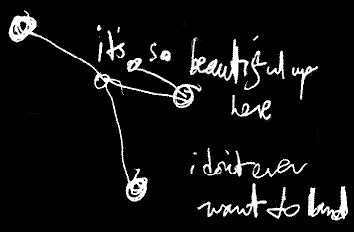 it's so beautiful up
here
i don't ever
want to land